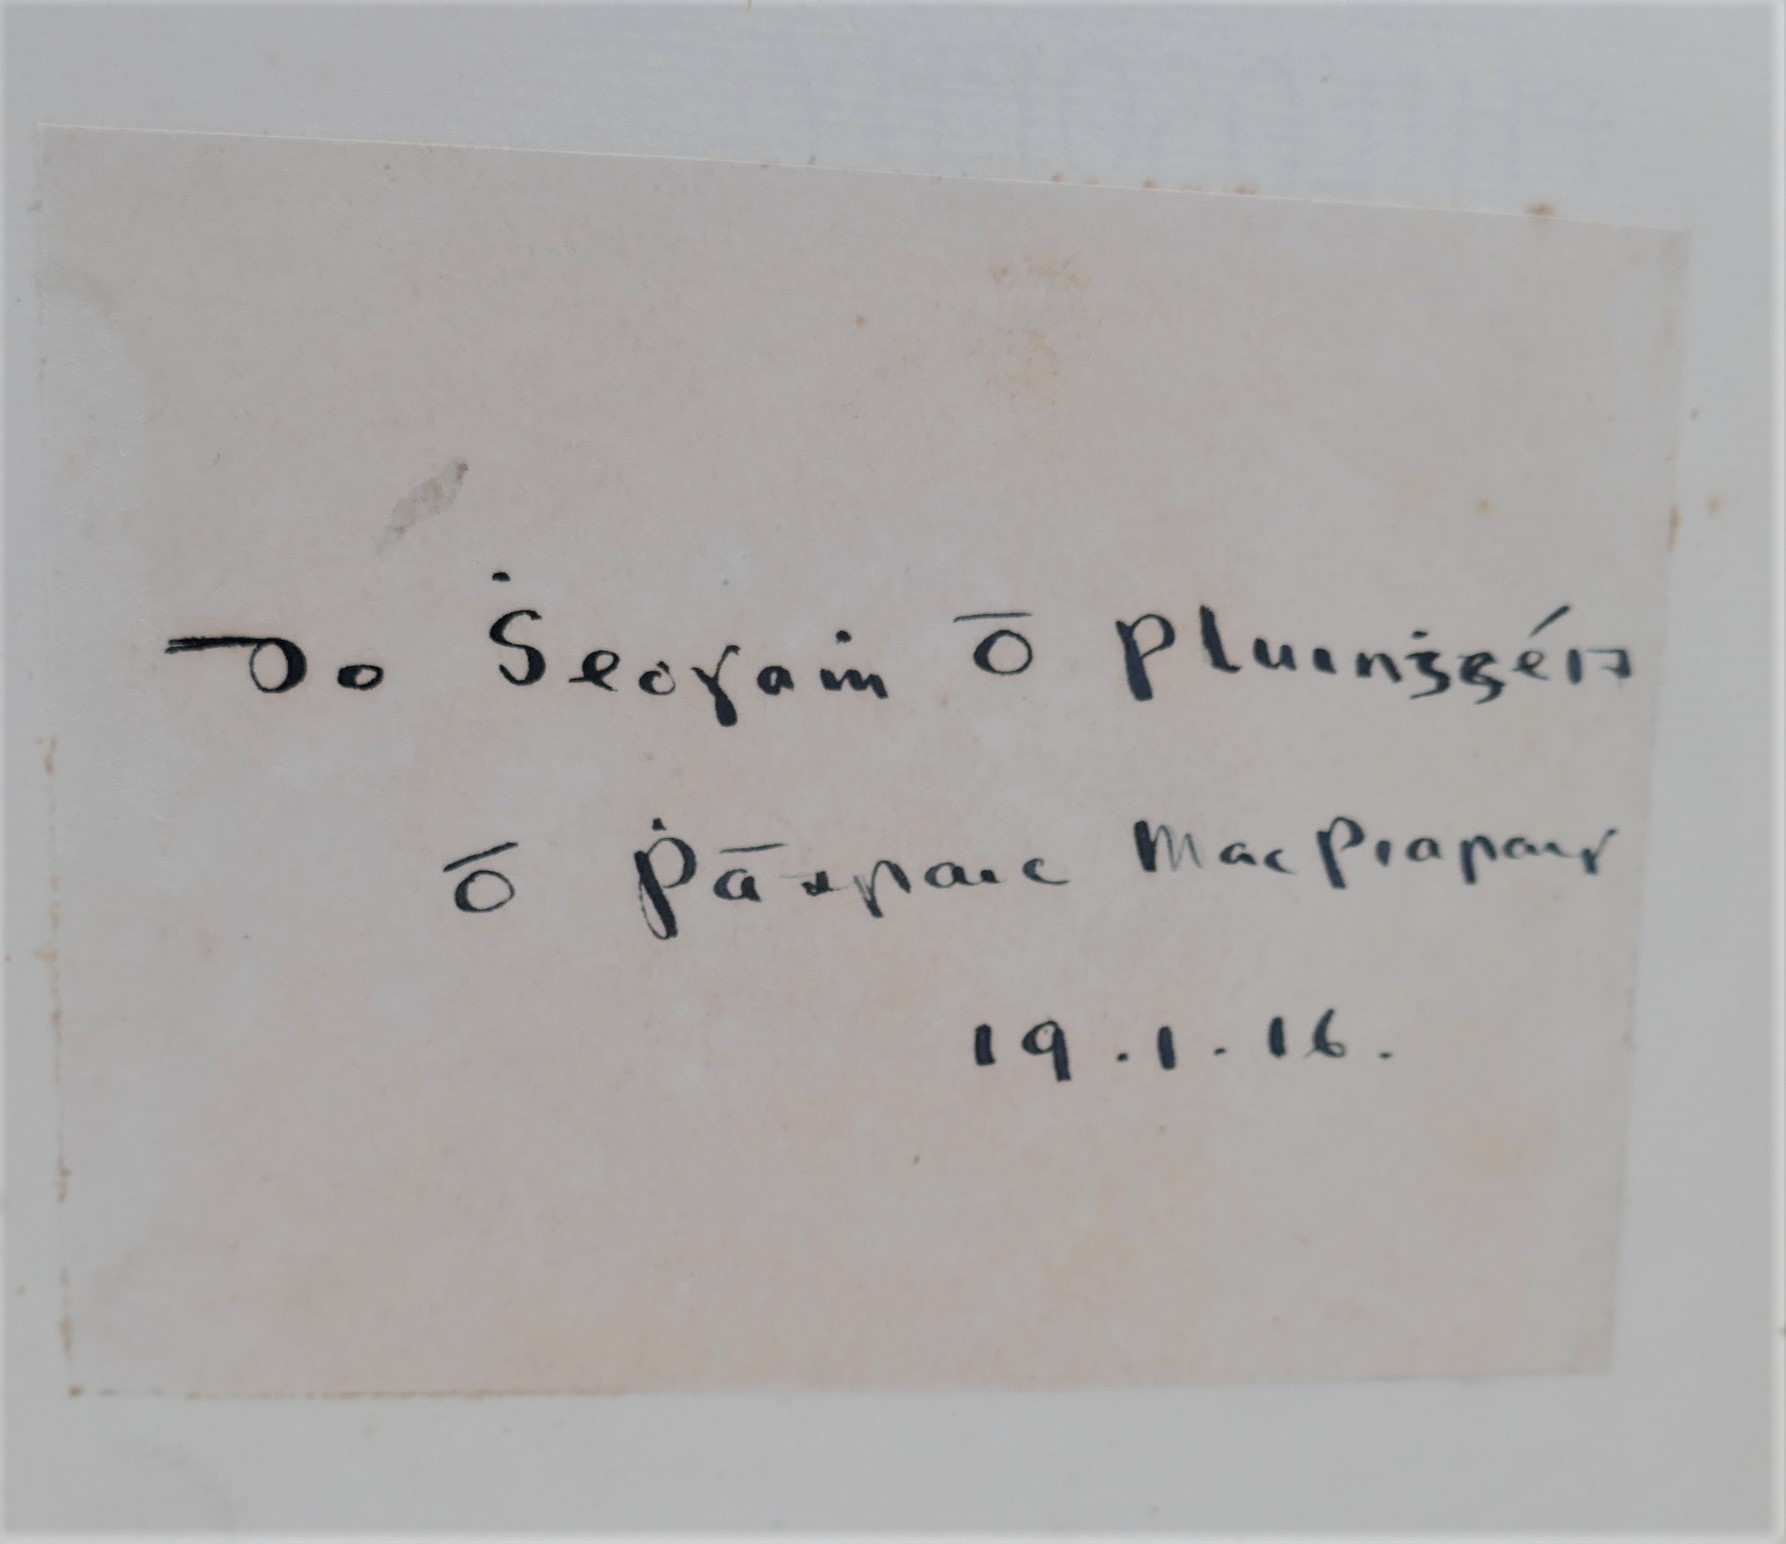 Do Ṡeosaiṁ ō Pluinġgéid
ō Ṗādraic Mac Piarais
19.1.16.